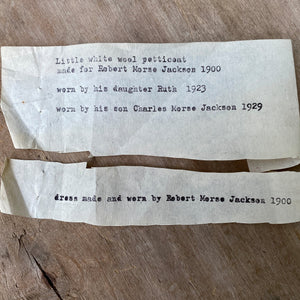 Little white wool petticoat
made for Robert Morse Jackson 1900
worn by his daughter Ruth 1923
worn by his son Charles Morse Jackson 1929
dress made and worn by Robert Morse Jackson 1900